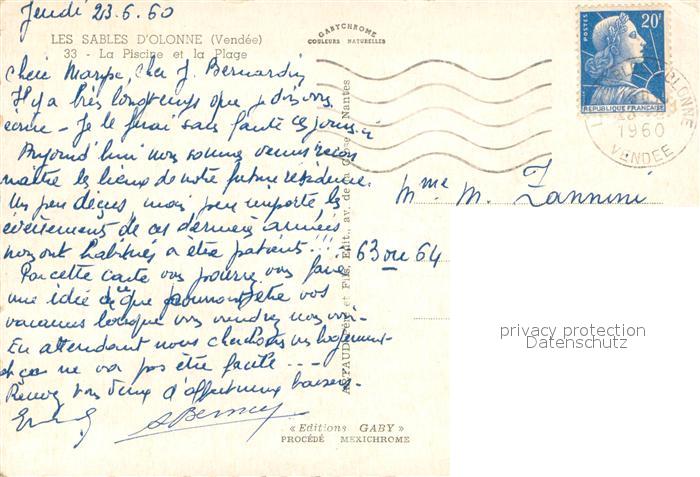 Jeudi 23.6.60
LES SABLES D'OLONNE (Vendée)
33 - La Piscine et la Plage
GABYCHROME
COULEURS NATURELLES
POSTES
20F
REPUBLIQUE FRANÇAISE
OLONNE
1960
VENDEE
Chère Maryse, Cher J. Bernardin
Il y a très longtemps que je dois vous
écrire - Je le ferai sans faute ces jours-ci
Aujourd'hui nous sommes venus recon
naître les lieux de notre future résidence.
Un peu déçus, mais peu importe les
évènements de ces dernières années
nous ont habitués à être patients!!!
Par cette carte vous pourrez vous faire
une idée de ce que pourront être vos
vacances lorsque vous viendrez nous voir -
En attendant nous cherchons un logement
et ça ne va pas être facile ---
Recevez tous deux d'affectueux baisers.
Mme M. Zannini
63 ou 64
Fils, Edit., av. de la
Nantes
« Editions GABY »
PROCÉDÉ MEXICHROME
privacy protection
Datenschutz